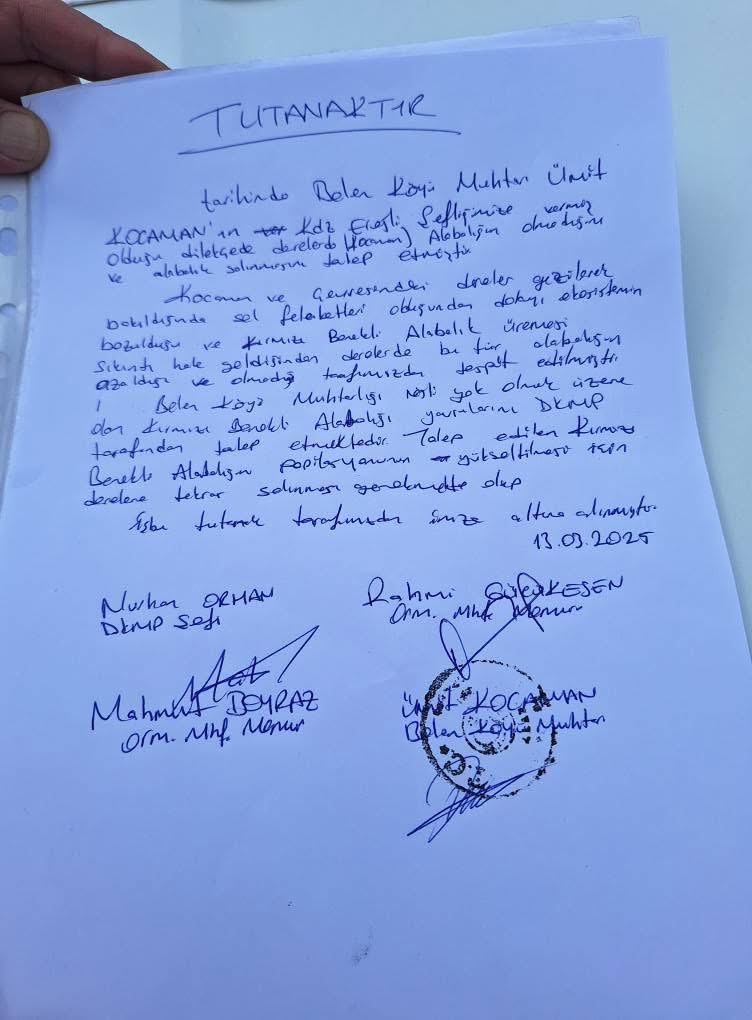 TUTANAKTIR
tarihinde Belen Köyü Muhtarı Ümit
KOCAMAN'ın Kdz Ereğli Şefliğimize vermiş
olduğu dilekçede derelerde (Kocaman) Alabalığın olmadığını
ve alabalık salınmasını talep etmiştir
Kocaman ve Çevresindeki dereler gezilerek
bakıldığında sel felaketleri olduğundan dolayı ekosistemin
bozulduğu ve Kırmızı Benekli Alabalık üremesi
sıkıntı hale geldiğinden derelerde bu tür alabalığın
azaldığı ve olmadığı tarafımızdan tespit edilmiştir
Belen Köyü Muhtarlığı nesli yok olmak üzere
olan Kırmızı Benekli Alabalığı yavrularını DKMP
tarafından talep etmektedir. Talep edilen Kırmızı
Benekli Alabalığın popilasyonunun yükseltilmesi için
derelere tekrar salınması gerekmekte olup
İşbu tutanak tarafımızdan imza altına alınmıştır.
13.03.2025
Nurhan ORHAN
DKMP Şefi
Rahmi
Orm. Mhf. Memur
Mahmut BOYRAZ
Orm. Mhf. Memur
Ümit KOCAMAN
Belen Köyü Muhtarı